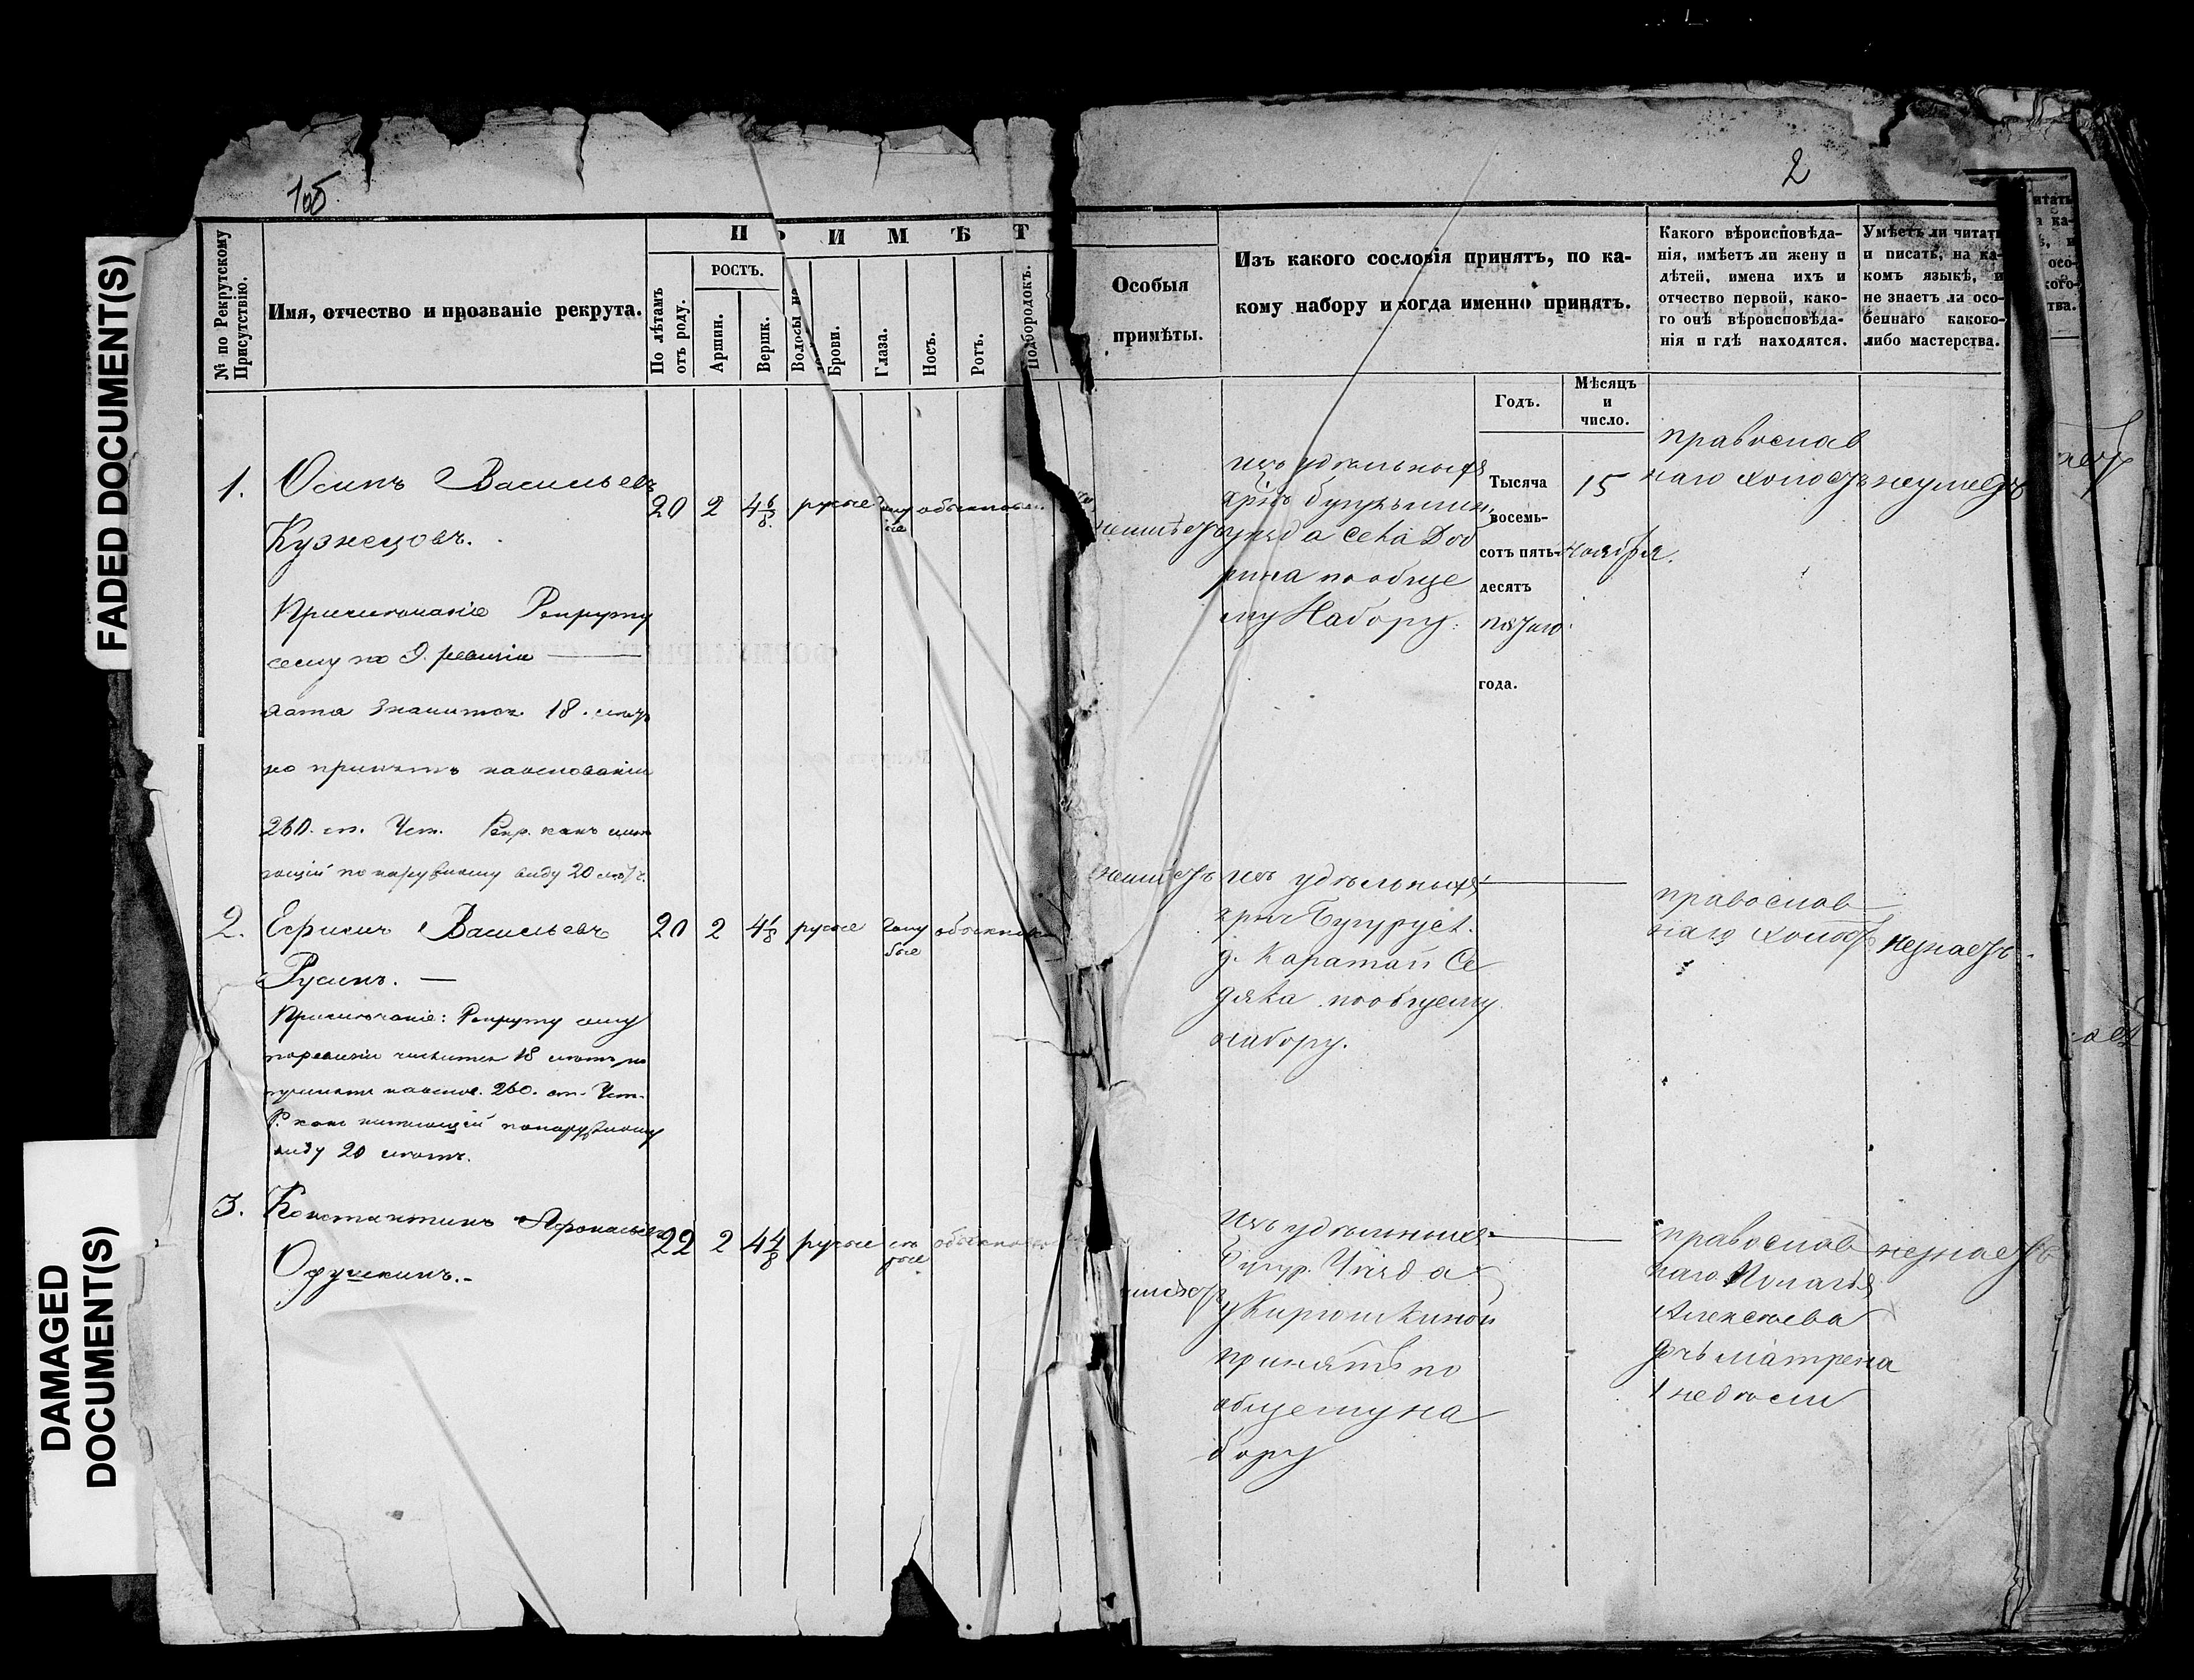 FADED DOCUMENT(S)
DAMAGED
DOCUMENT(S)
2
№ по Рекрутскому
Присутствію.
Имя, отчество и прозваніе рекрута.
П Р И М Ѣ Т
По лѣтамъ
отъ роду.
РОСТЪ.
Аршин.
Вершк.
Волосы на
Брови.
Глаза.
Носъ.
Ротъ.
Подбородокъ.
Особыя
примѣты.
Изъ какого сословія принятъ, по ка-
кому набору и когда именно принятъ.
Годъ.
Мѣсяцъ
и
число.
Какого вѣроисповѣда-
нія, имѣетъ ли жену и
дѣтей, имена ихъ и
отчество первой, како-
го онѣ вѣроисповѣда-
нія и гдѣ находятся.
Умѣетъ ли читать
и писать, на ка-
комъ языкѣ, и
не знаетъ ли осо-
беннаго какого-
либо мастерства.
1.
Осипъ Васильевъ
Кузнецовъ.
Примѣчаніе Рекруту
сему по 9. ревизіи
лѣта значится 18. лѣтъ
но принятъ наоснованіи
260. ст. Уст. Рекр. какъ имѣ
ющій по наружному виду 20 лѣтъ.
20
2
4 6/8
русые
голу
бые
обыкновен.
неимѣетъ
изъ удѣльныхъ
крѣ бугульмин.
уѣзда села Доб
рина пообще
му Набору.
Тысяча
восемь-
сотъ пять-
десятъ
пятаго
года.
15
ноября.
православ
наго холостъ
неумеетъ
2.
Ефимъ Васильевъ
Русинъ. —
Примѣчаніе: Рекруту сему
поревизіи числится 18 лѣтъ но
принятъ наоснов. 260. ст. Уст.
Р. какъ имѣющій понаружному
виду 20 лѣтъ.
20
2
4 1/8
русые
голу
бые
обыкновен
неимѣетъ
изъ удѣльныхъ
крес Бугурусл.
д. Каратай Се
дяка пообщему
набору.
православ
наго холостъ
незнаетъ.
3.
Константинъ Афонасьевъ
22
2
4 4/8
русые
сѣ
рые
обыкновен
имѣетъ
Изъ удѣльныхъ
Бугур. Уѣзда
Кирюшкиной
принятъ по
общему на
бору
православ
наго. Пелагѣя
Алексѣева
дочь матрена
1 недѣли
незнаетъ